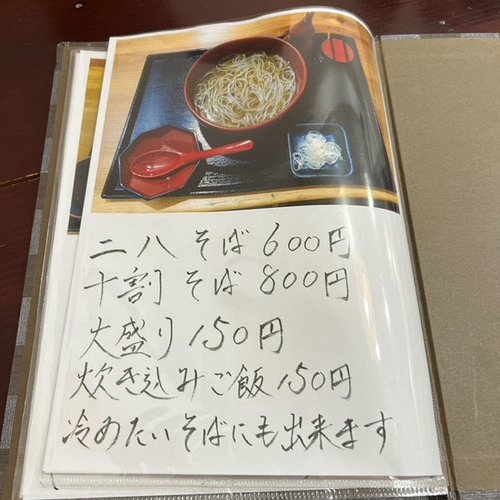 二八 そば 600円
十割 そば 800円
大盛り 150円
炊き込みご飯 150円
冷めたいそばにも出来ます